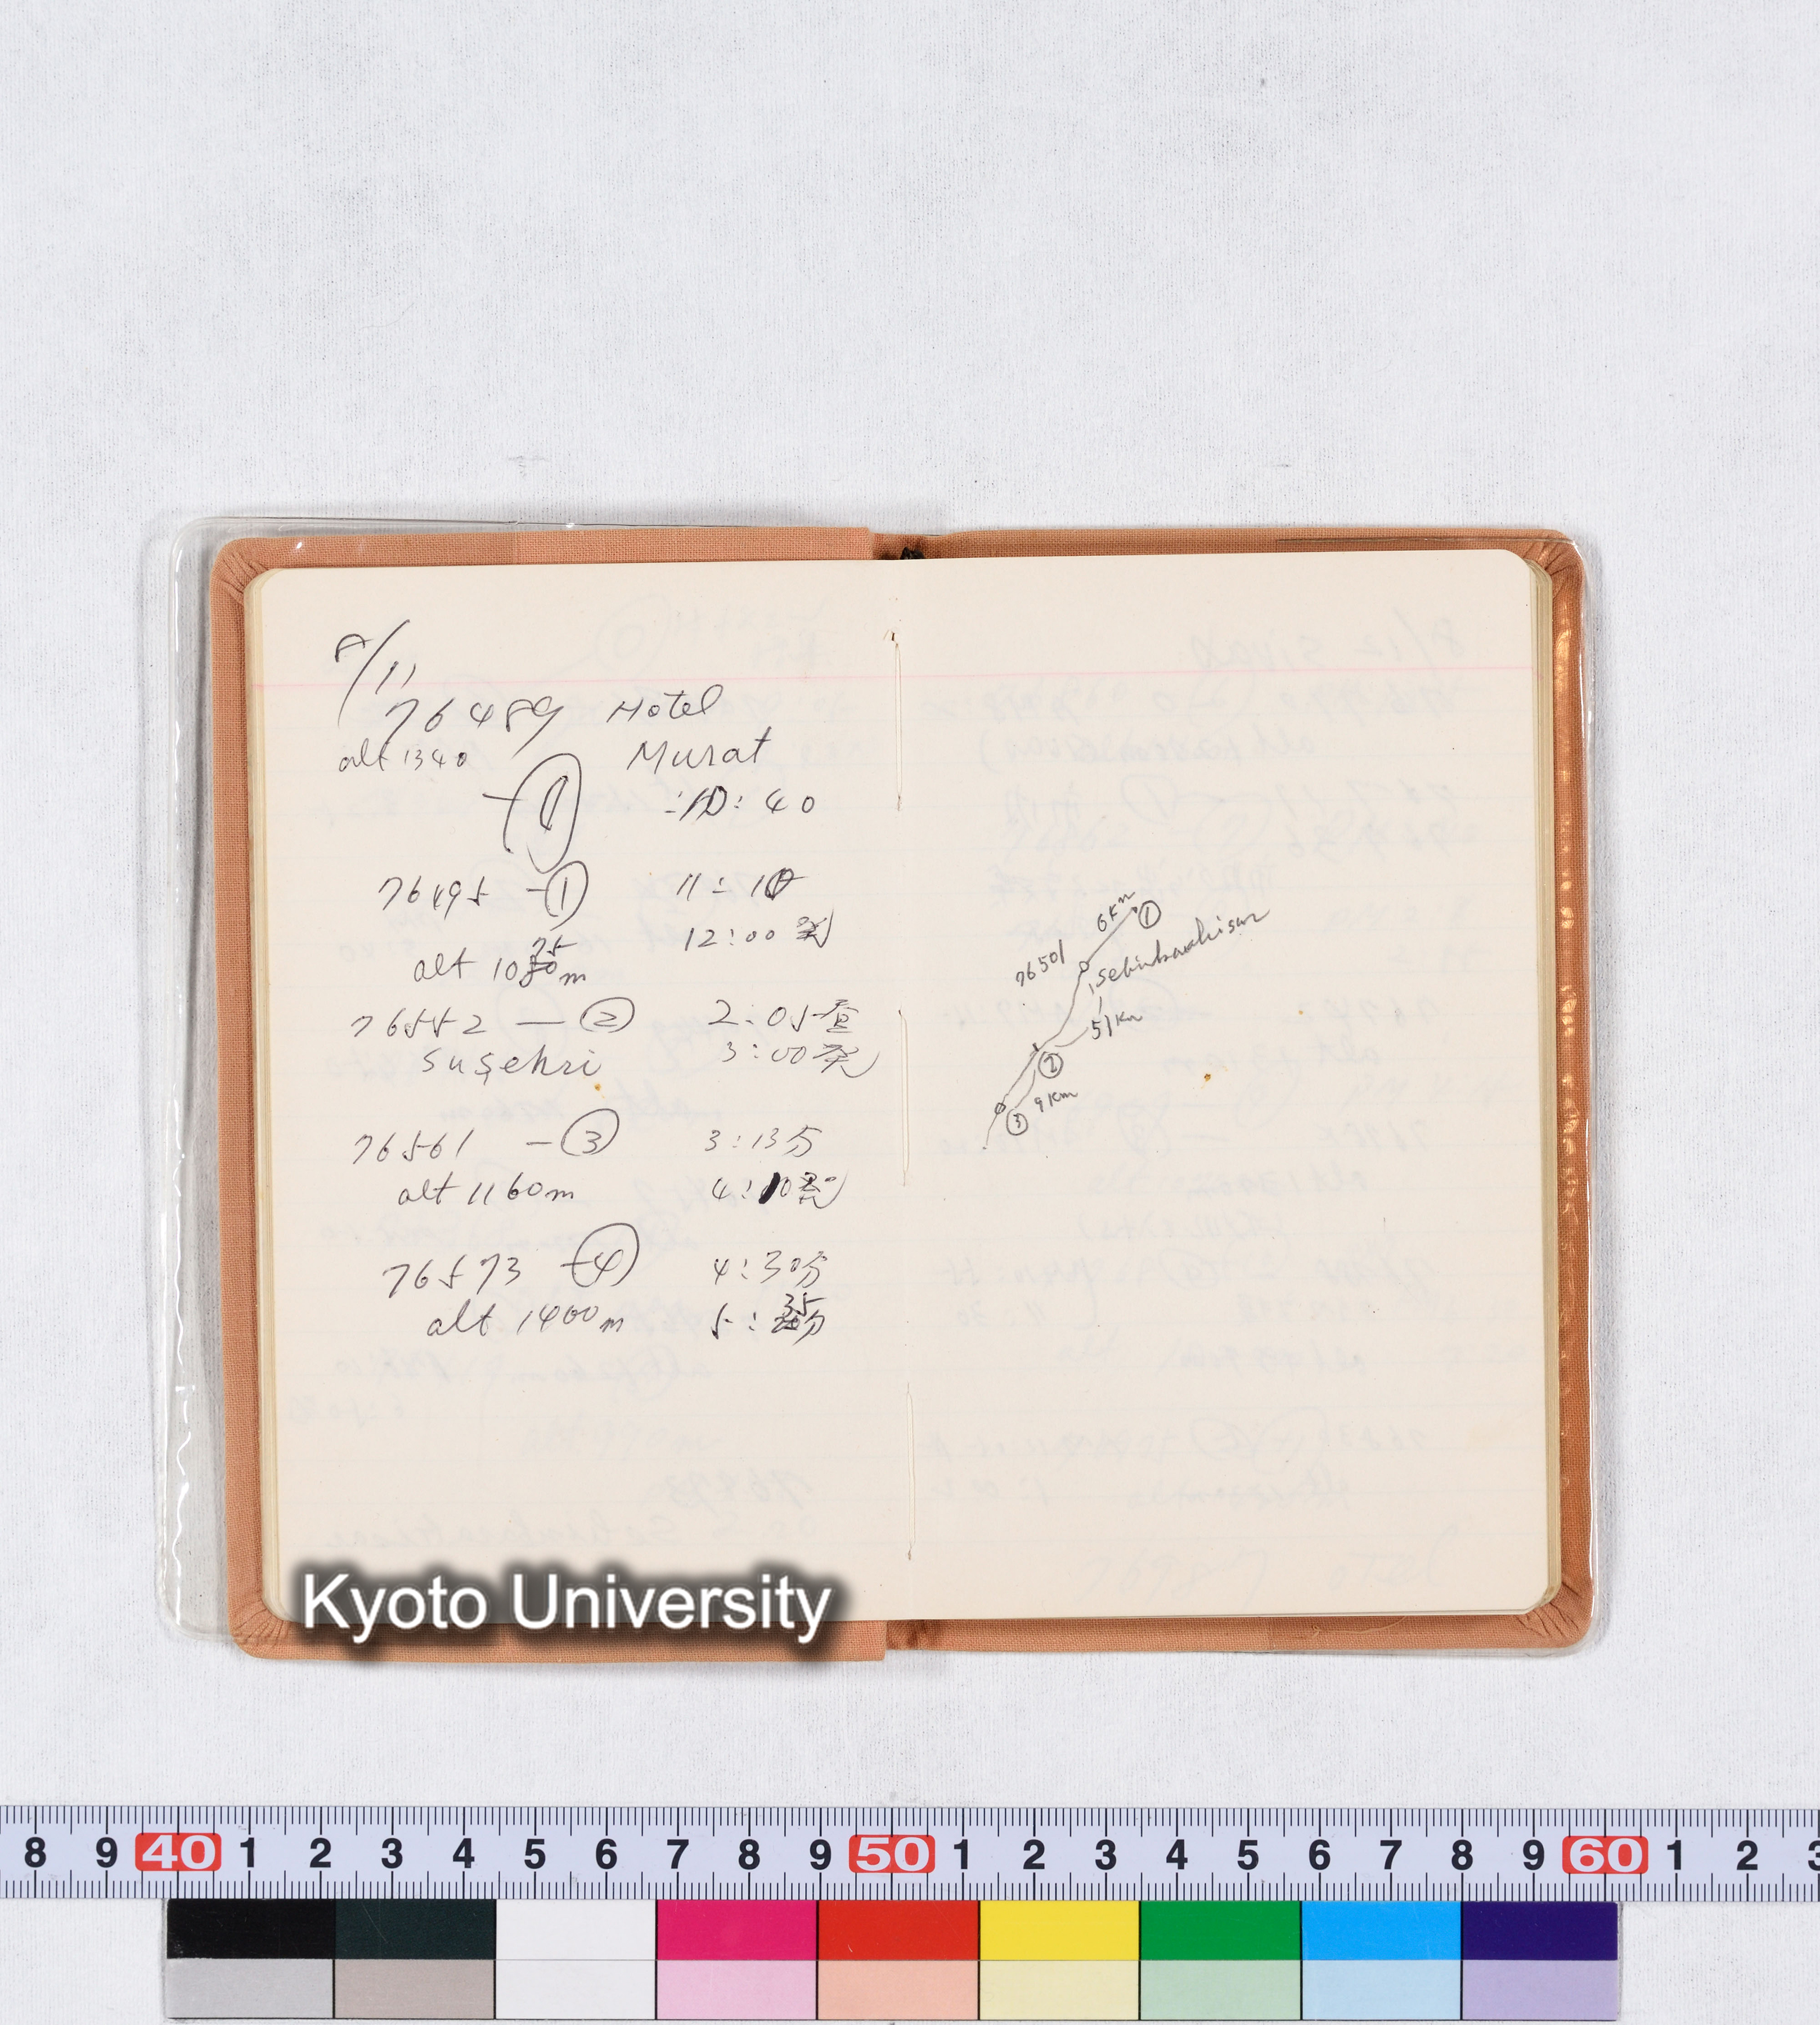 8/11
76489 Hotel
alt 1340 Murat
①
10:40
76495 — ① 11:10
12:00 発
alt 1075m
76552 — ② 2:05着
suşehri 3:00発
76561 — ③ 3:13分
alt 1160m 4:10発
76573 — ④ 4:30分
alt 1400m 5:35分
6Km ①
76501
51Km
②
9Km
③
Kyoto University
8 9 40 1 2 3 4 5 6 7 8 9 50 1 2 3 4 5 6 7 8 9 60 1 2 3